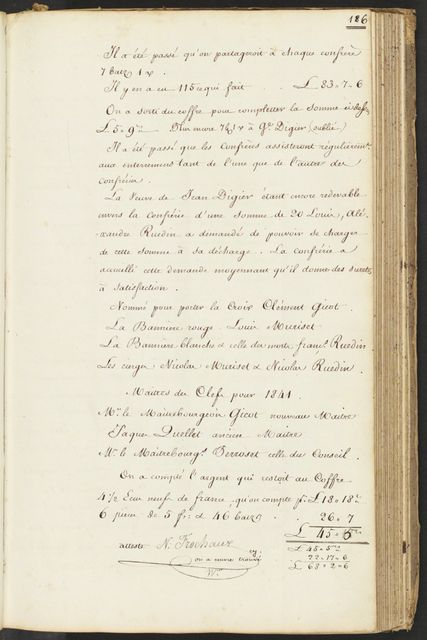 186
Il a été passé qu'on partageroit à chaque confrère
7 batz 1 x.
Il y en a eu 115 ce qui fait £ 83 " 7 " 6
On a sorti du coffre pour completter la somme
£ 5 " 9 " Dun encore 7 1 x à Digier (oublié)
Il a été passé que les Confrères assisteront régulièremt.
aux enterremens tant de l'une que de l'autre des
confréries.
La Veuve de Jean Digier étant encore redevable
envers la confrérie d'une somme de 20 Louis, Alé-
xandre Ruedin a demandé de pouvoir se charger
de cette somme à sa décharge. La confrérie a
accueilli cette demande moyennant qu'il donne des suretés
à satisfaction.
Nommé pour porter la Croix Clément Gicot.
La Bannière rouge Louis Muriset
La Bannière blanche & celle des morts franç.s Ruedin
Les cierges Nicolas Muriset & Nicolas Ruedin.
Maitres des Clefs pour 1841.
Mr. le Maitrebourgeois Gicot nouveau Maitre
Jaques Quellet ancien Maitre
Mr. le Maitrebourgs. Perroset celle du Conseil.
On a compté l'argent qui restoit au Coffre
4 1/2 Ecus neufs de france, qu'on compte pr. £ 18 " 18
6 pièces de 5 fr: & 46 batz 26 " 7
£ 45 " 5
atteste N. Frochaux
on a encore trouvé
£ 45 " 5
22 " 17 " 6
£ 68 " 2 " 6